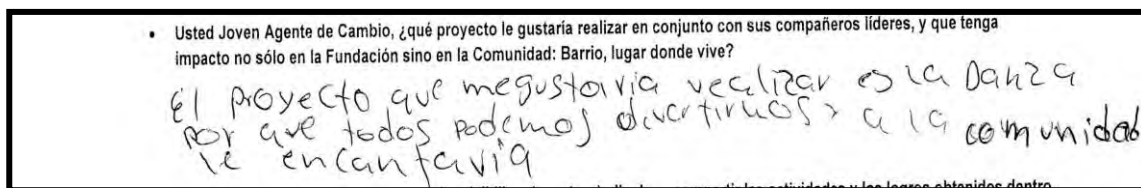 • Usted Joven Agente de Cambio, ¿qué proyecto le gustaría realizar en conjunto con sus compañeros líderes, y que tenga
impacto no sólo en la Fundación sino en la Comunidad: Barrio, lugar donde vive?
El proyecto que megustaria realizar es la Danza
por que todos podemos divertirnos y a la comunidad
le encantaria
las actividades y los logros obtenidos dentro